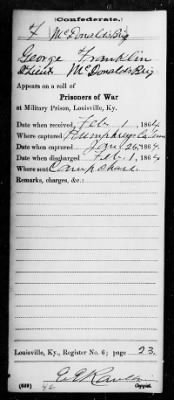 (Confederate.)
F McDonald's Brig
George Franklin
Lieut McDonald's Brig
Appears on a roll of
Prisoners of War
at Military Prison, Louisville, Ky.
Date when received, Feb 1, 1864
Where captured Humphreys Co Tenn
Date when captured Jan 26, 1864
Date when discharged Feb 1, 1864
Where sent Camp Chase
Remarks, charges, &c.:
Louisville, Ky., Register No. 6; page 23
(639)
Copyist.